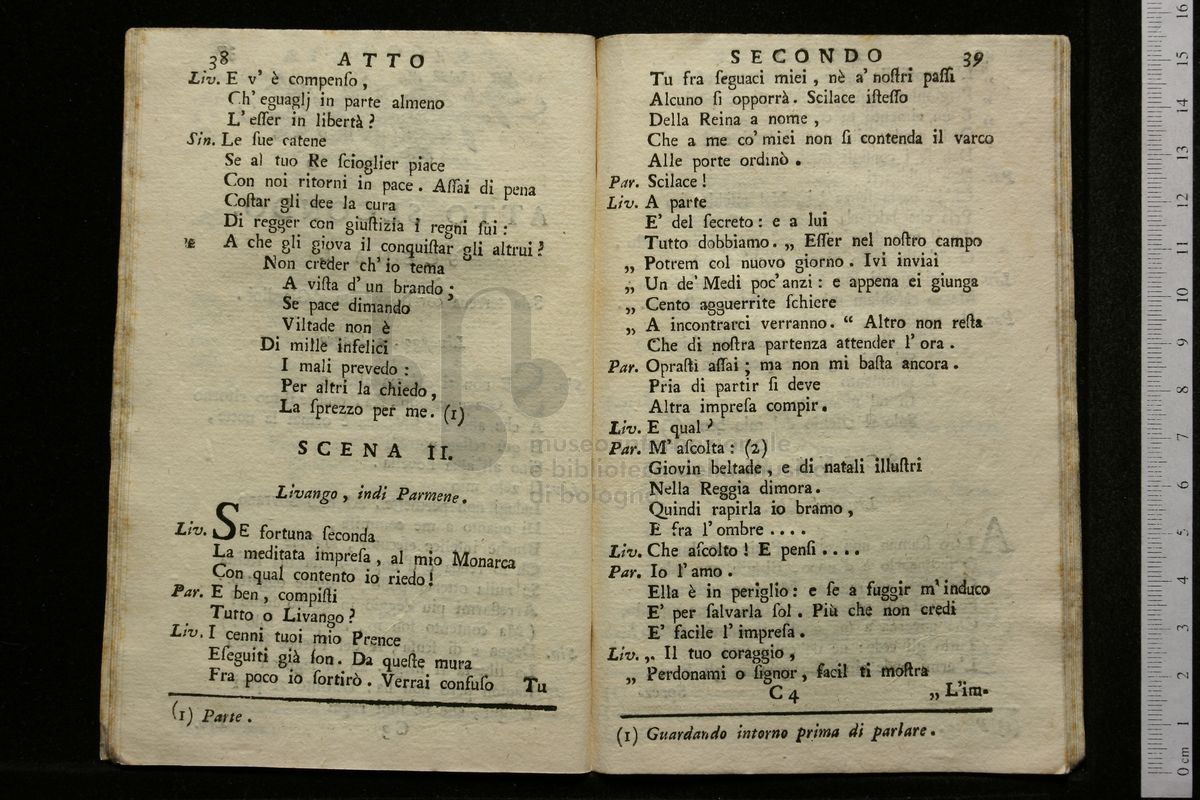 38 ATTO
Liv. E v' è compenſo,
Ch' eguaglj in parte almeno
L' eſſer in libertà?
Sin. Le ſue catene
Se al tuo Re ſcioglier piace
Con noi ritorni in pace. Aſſai di pena
Coſtar gli dee la cura
Di regger con giuſtizia i regni ſui:
A che gli giova il conquiſtar gli altrui?
Non creder ch' io tema
A viſta d' un brando;
Se pace dimando
Viltade non è
Di mille infelici
I mali prevedo:
Per altri la chiedo,
La ſprezzo per me. (1)
SCENA II.
Livango, indi Parmene.
Liv. SE fortuna ſeconda
La meditata impreſa, al mio Monarca
Con qual contento io riedo!
Par. E ben, compiſti
Tutto o Livango?
Liv. I cenni tuoi mio Prence
Eſeguiti già ſon. Da queſte mura
Fra poco io ſortirò. Verrai confuſo Tu
(1) Parte.
SECONDO 39
Tu fra ſeguaci miei, nè a' noſtri paſſi
Alcuno ſi opporrà. Scilace iſteſſo
Della Reina a nome,
Che a me co' miei non ſi contenda il varco
Alle porte ordinò.
Par. Scilace!
Liv. A parte
E' del ſecreto: e a lui
Tutto dobbiamo. „ Eſſer nel noſtro campo
„ Potrem col nuovo giorno. Ivi inviai
„ Un de' Medi poc' anzi: e appena ei giunga
„ Cento agguerrite ſchiere
„ A incontrarci verranno. “ Altro non reſta
Che di noſtra partenza attender l' ora.
Par. Opraſti aſſai; ma non mi baſta ancora.
Pria di partir ſi deve
Altra impreſa compir.
Liv. E qual?
Par. M' aſcolta: (2)
Giovin beltade, e di natali illuſtri
Nella Reggia dimora.
Quindi rapirla io bramo,
E fra l' ombre ....
Liv. Che aſcolto! E penſi ....
Par. Io l' amo.
Ella è in periglio: e ſe a fuggir m' induco
E' per ſalvarla ſol. Più che non credi
E' facile l' impreſa.
Liv. „ Il tuo coraggio,
„ Perdonami o ſignor, facil ti moſtra
C 4 „ L'im-
(1) Guardando intorno prima di parlare.